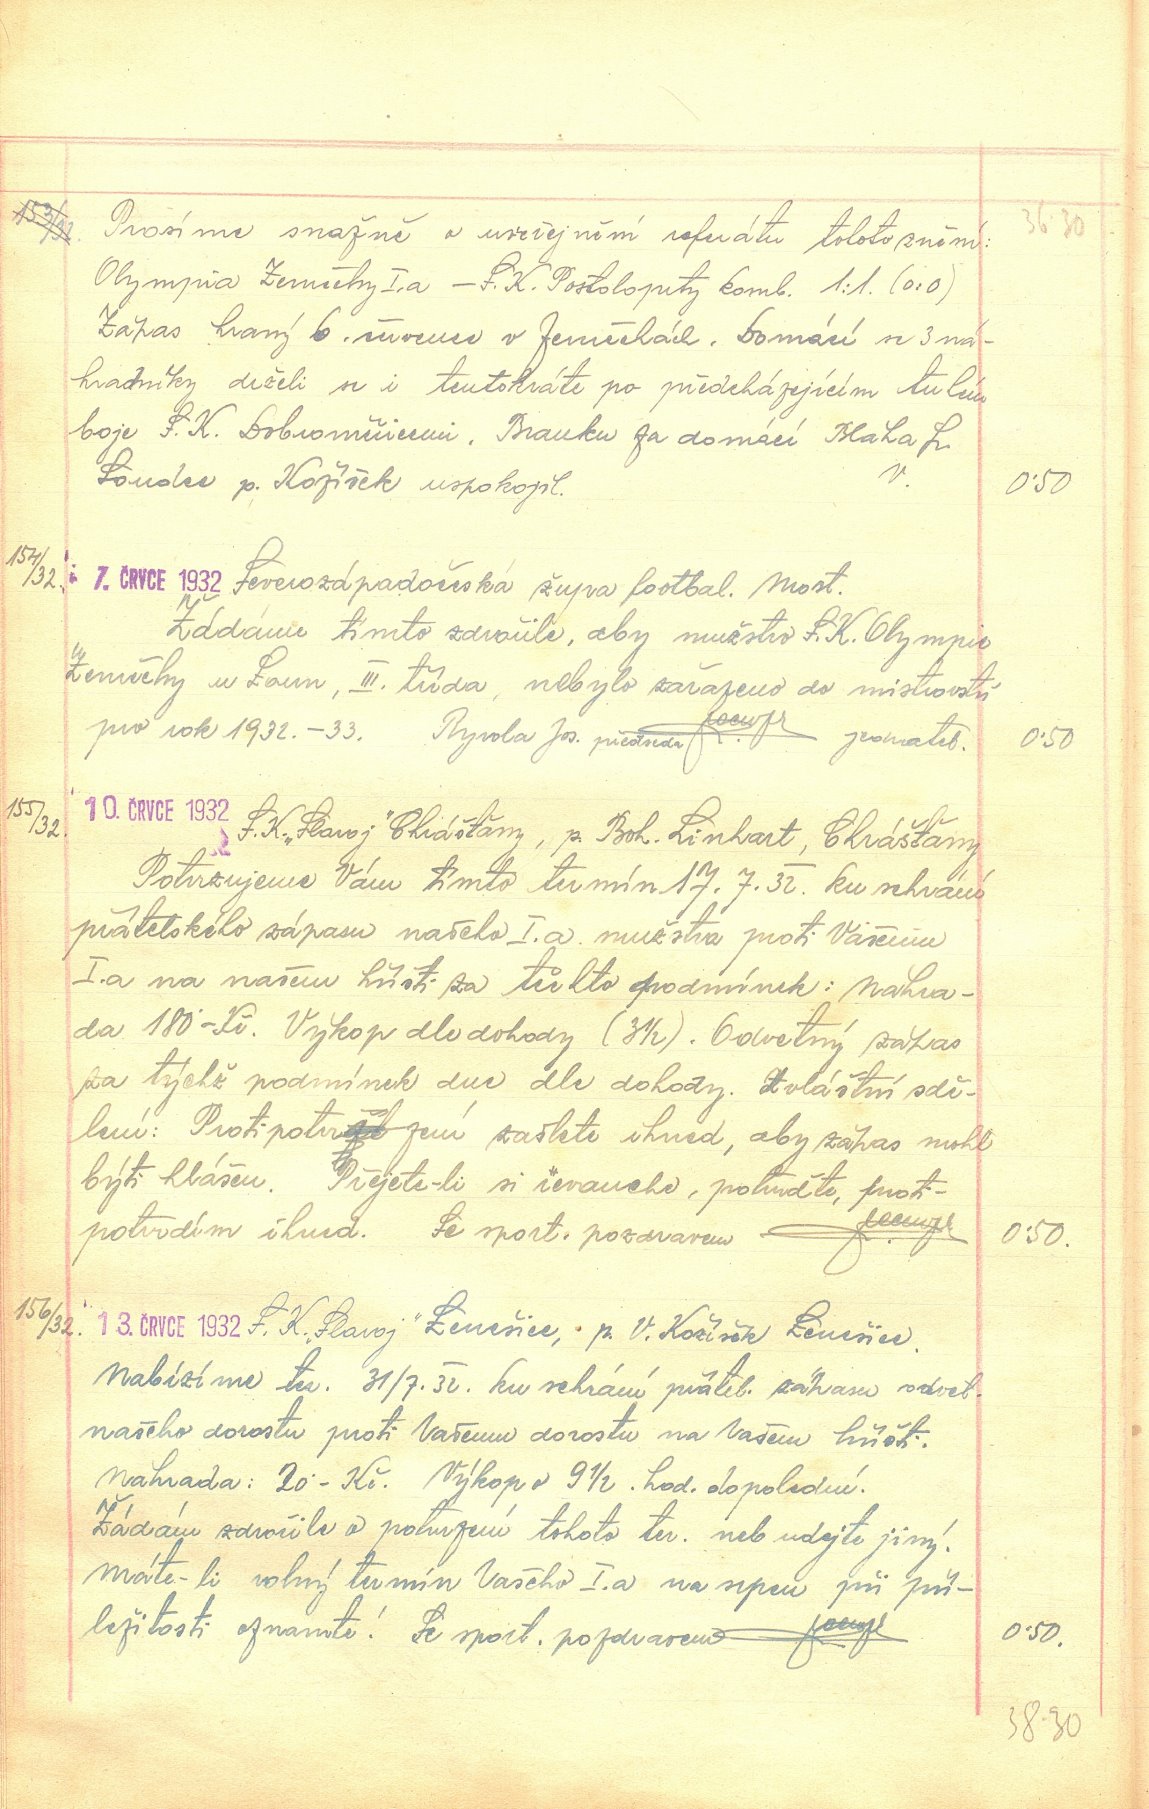 153/32. Prosíme snažně o uveřejnění referátu tohoto znění: 36·30
Olympia Žemečhy I.a – S.K. Postoloprty komb. 1:1. (0:0)
Zápas hraný 6. července v Žeměchách. Domácí se 3 ná-
hradníky drželi se i tentokráte po předcházejícím tuhém
boje S.K. Dobroměřicemi. Branku za domácí Blaha Fr.
Soudce p. Kožíšek uspokojil. V. 0·50
154/32. 7. ČRVCE 1932 Severozápadočeská župa footbal. Most.
Žádáme tímto zdvořile, aby mužstvo S.K. Olympie
Žeměchy u Loun, III. třída, nebylo zařazeno do mistrovství
pro rok 1932.–33. Ryvola Jos. předseda jednatel. 0·50
155/32. 10. ČRVCE 1932 S.K. „Slavoj" Chrášťany, p. Boh. Linhart, Chrášťany
Potvrzujeme Vám tímto termín 17. 7. 32. ku sehrání
přátelského zápasu našeho I.a mužstva proti Vašemu
I.a na našem hřišti za těchto podmínek: Náhra-
da 180·– Kč. Výkop dle dohody (3½). Odvetný zápas
za týchž podmínek dne dle dohody. Zvláštní sdě-
lení: Protipotvrzení zašlete ihned, aby zápas mohl
býti hlášen. Přejete-li si revanche, potvrďte, proti-
potvrdím ihned. Se sport. pozdravem 0·50.
156/32. 13. ČRVCE 1932 S.K. „Slavoj" Lenešice, p. V. Kožíšek Lenešice.
Nabízíme ter. 31/7. 32. ku sehrání přátel. zápasu odvet.
našeho dorostu proti Vašemu dorostu na Vašem hřišti.
Náhrada: 20·– Kč. Výkop o 9½. hod. dopolední.
Žádám zdvořile o potvrzení tohoto ter. neb udejte jiný.
Máte-li volný termín Vašeho I.a na srpen při pří-
ležitosti oznamte! Se sport. pozdravem 0·50.
38·30